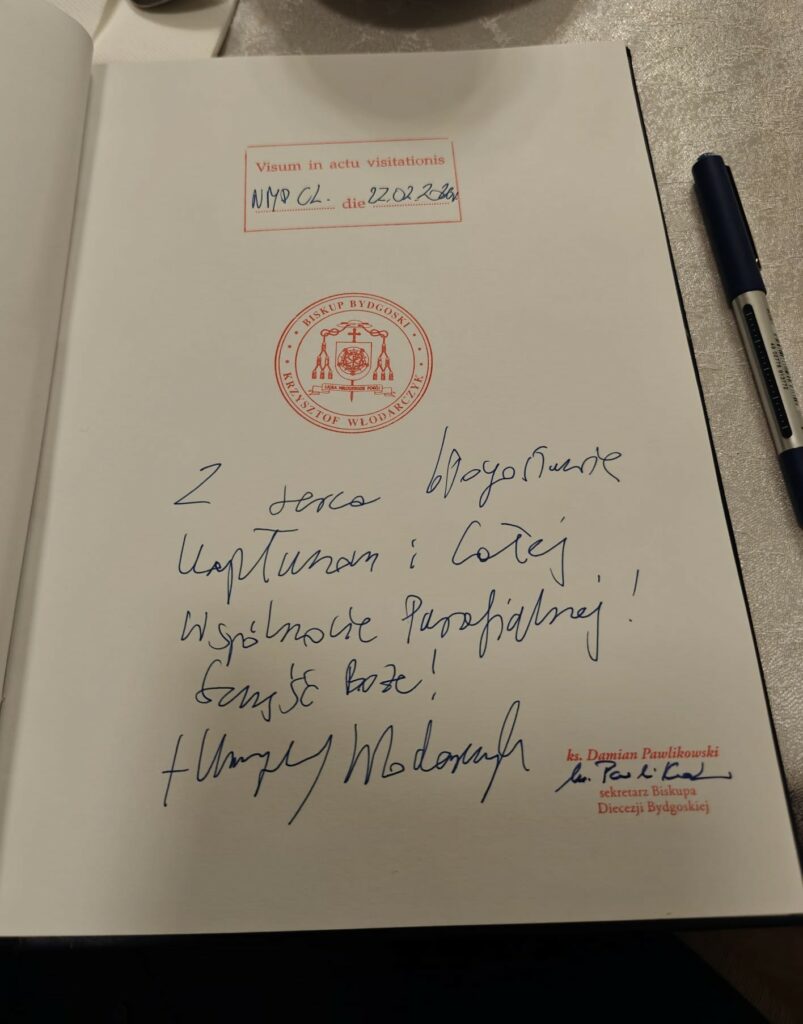 Visum in actu visitationis
NMP CL. die 22.02.202
BISKUP BYDGOSKI
KRZYSZTOF WŁODARCZYK
Z serca błogosławię
Kapłanom i Całej
Wspólnocie Parafialnej!
Szczęść Boże!
+ Krzysztof Włodarczyk
ks. Damian Pawlikowski
ks. Pawlikowski
sekretarz Biskupa
Diecezji Bydgoskiej